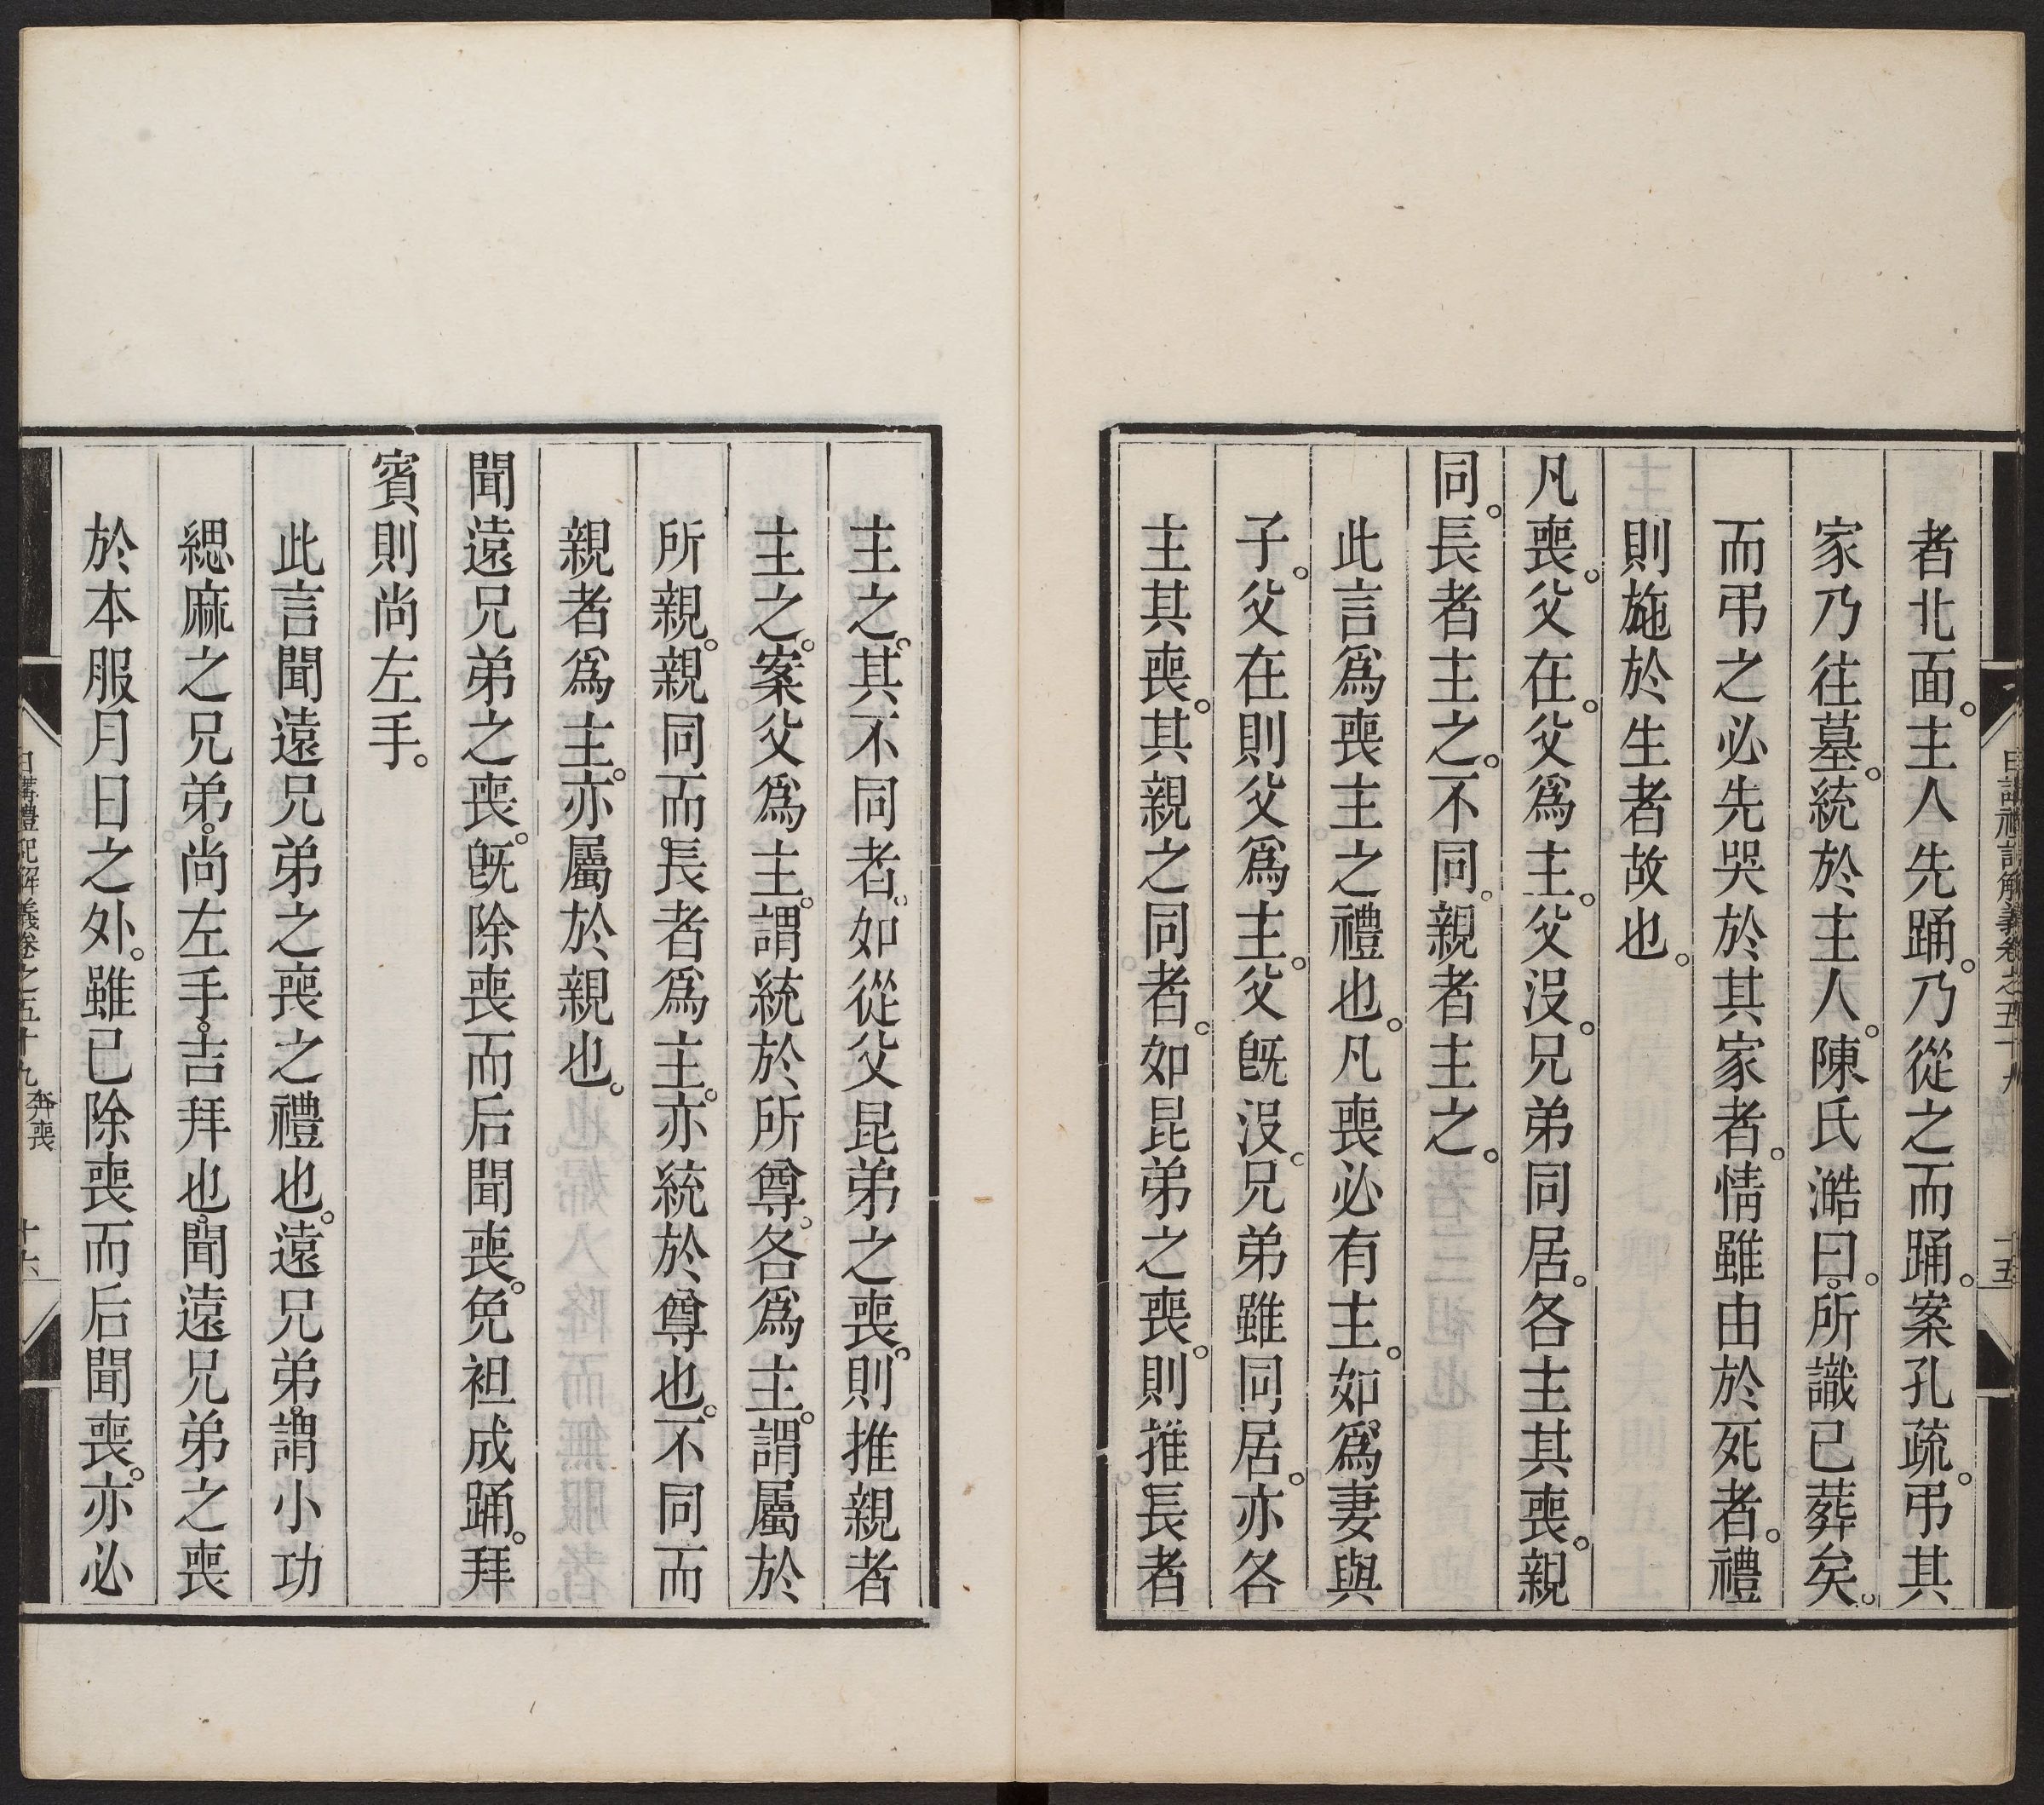 者北面。主人先踊。乃從之而踊。案孔疏。弔其
家乃往墓。統於主人。陳氏澔曰。所識已葬矣。
而弔之必先哭於其家者。情雖由於死者。禮
則施於生者故也。
凡喪。父在。父爲主。父沒。兄弟同居。各主其喪。親
同。長者主之。不同。親者主之。
此言爲喪主之禮也。凡喪必有主。如爲妻與
子。父在則父爲主。父旣沒。兄弟雖同居。亦各
主其喪。其親之同者。如昆弟之喪。則推長者
主之。其不同者。如從父昆弟之喪。則推親者
主之。案父爲主。謂統於所尊。各爲主。謂屬於
所親。親同而長者爲主。亦統於尊也。不同而
親者爲主。亦屬於親也。
聞遠兄弟之喪。旣除喪而后聞喪。免袒成踊。拜
賓則尚左手。
此言聞遠兄弟之喪之禮也。遠兄弟。謂小功
緦麻之兄弟。尚左手。吉拜也。聞遠兄弟之喪
於本服月日之外。雖已除喪而后聞喪。亦必
日講禮記解義卷之五十九 奔喪 十六